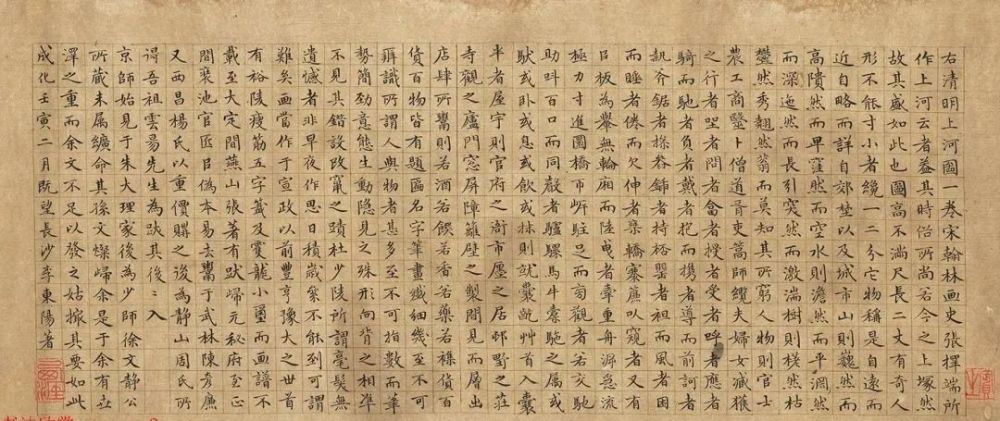 右清明上河圖一卷宋翰林画史張擇端所
作上河云者盖其時俗所尚若今之上塚然
故其盛如此也圖高不滿尺長二丈有奇人
形不能寸小者纔一二分它物稱是自遠而
近自略而詳自郊埜以及城市山則巍然而
高隤然而卑窪然而空水則澹然而平淵然
而深迤然而長引突然而激湍樹則槎然枯
鬱然秀翹然蓊而莫知其所窮人物則官士
農工商醫卜僧道胥吏篙師纜夫婦女臧獲
之行者坐者問者答者授者受者呼者應者
騎而馳者負者戴者抱而携者導而前訶者
執斧鋸者操畚鍤者持杯罌者袒而風者困
而睡者倦而欠伸者乗轎搴簾以窺者又有
以板為轝無輪廂而陸曵者牽重舟溯急流
極力寸進圜橋帀岸駐足而旁觀者若交
助呌百口而同聲者驢騾馬牛橐駞之属或
馱或卧或息或飲或秣則就囊齕艸首入囊
半者屋宇則官府之衙市廛之居邨野之莊
寺觀之廬門窓屏障籬壁之製間見而層出
店肆所鬻則若酒若饌若香若藥若雜貨百
貨百物皆有題匾名字筆畫纎細幾至不可
辯識所謂人與物者其多至不可指數而筆
勢簡勁意態生動隱見之殊形向背之相凖
不見其錯設改竄之蹟杜少陵所謂毫髮無
遺憾者非早夜作思日積歲絫不能到可謂
難矣画當作于宣政以前豐亨豫大之世首
有裕陵瘦筋五字籖及雙龍小璽而画譜不
載至大定間燕山張著有跋㱕元秘府至正
間裝池官匠以偽本易去鬻于武林陳彦廉
又西昌楊氏以重價購之後為静山周氏所
得吾祖雲昜先生為跋其後〻入
京師始見于朱大理家後為少師徐文静公
所藏未属纊命其孫文燦㱕余是于余有世
澤之重而余文不足以發之姑摭其要如此
成化壬寅二月既望長沙李東陽著